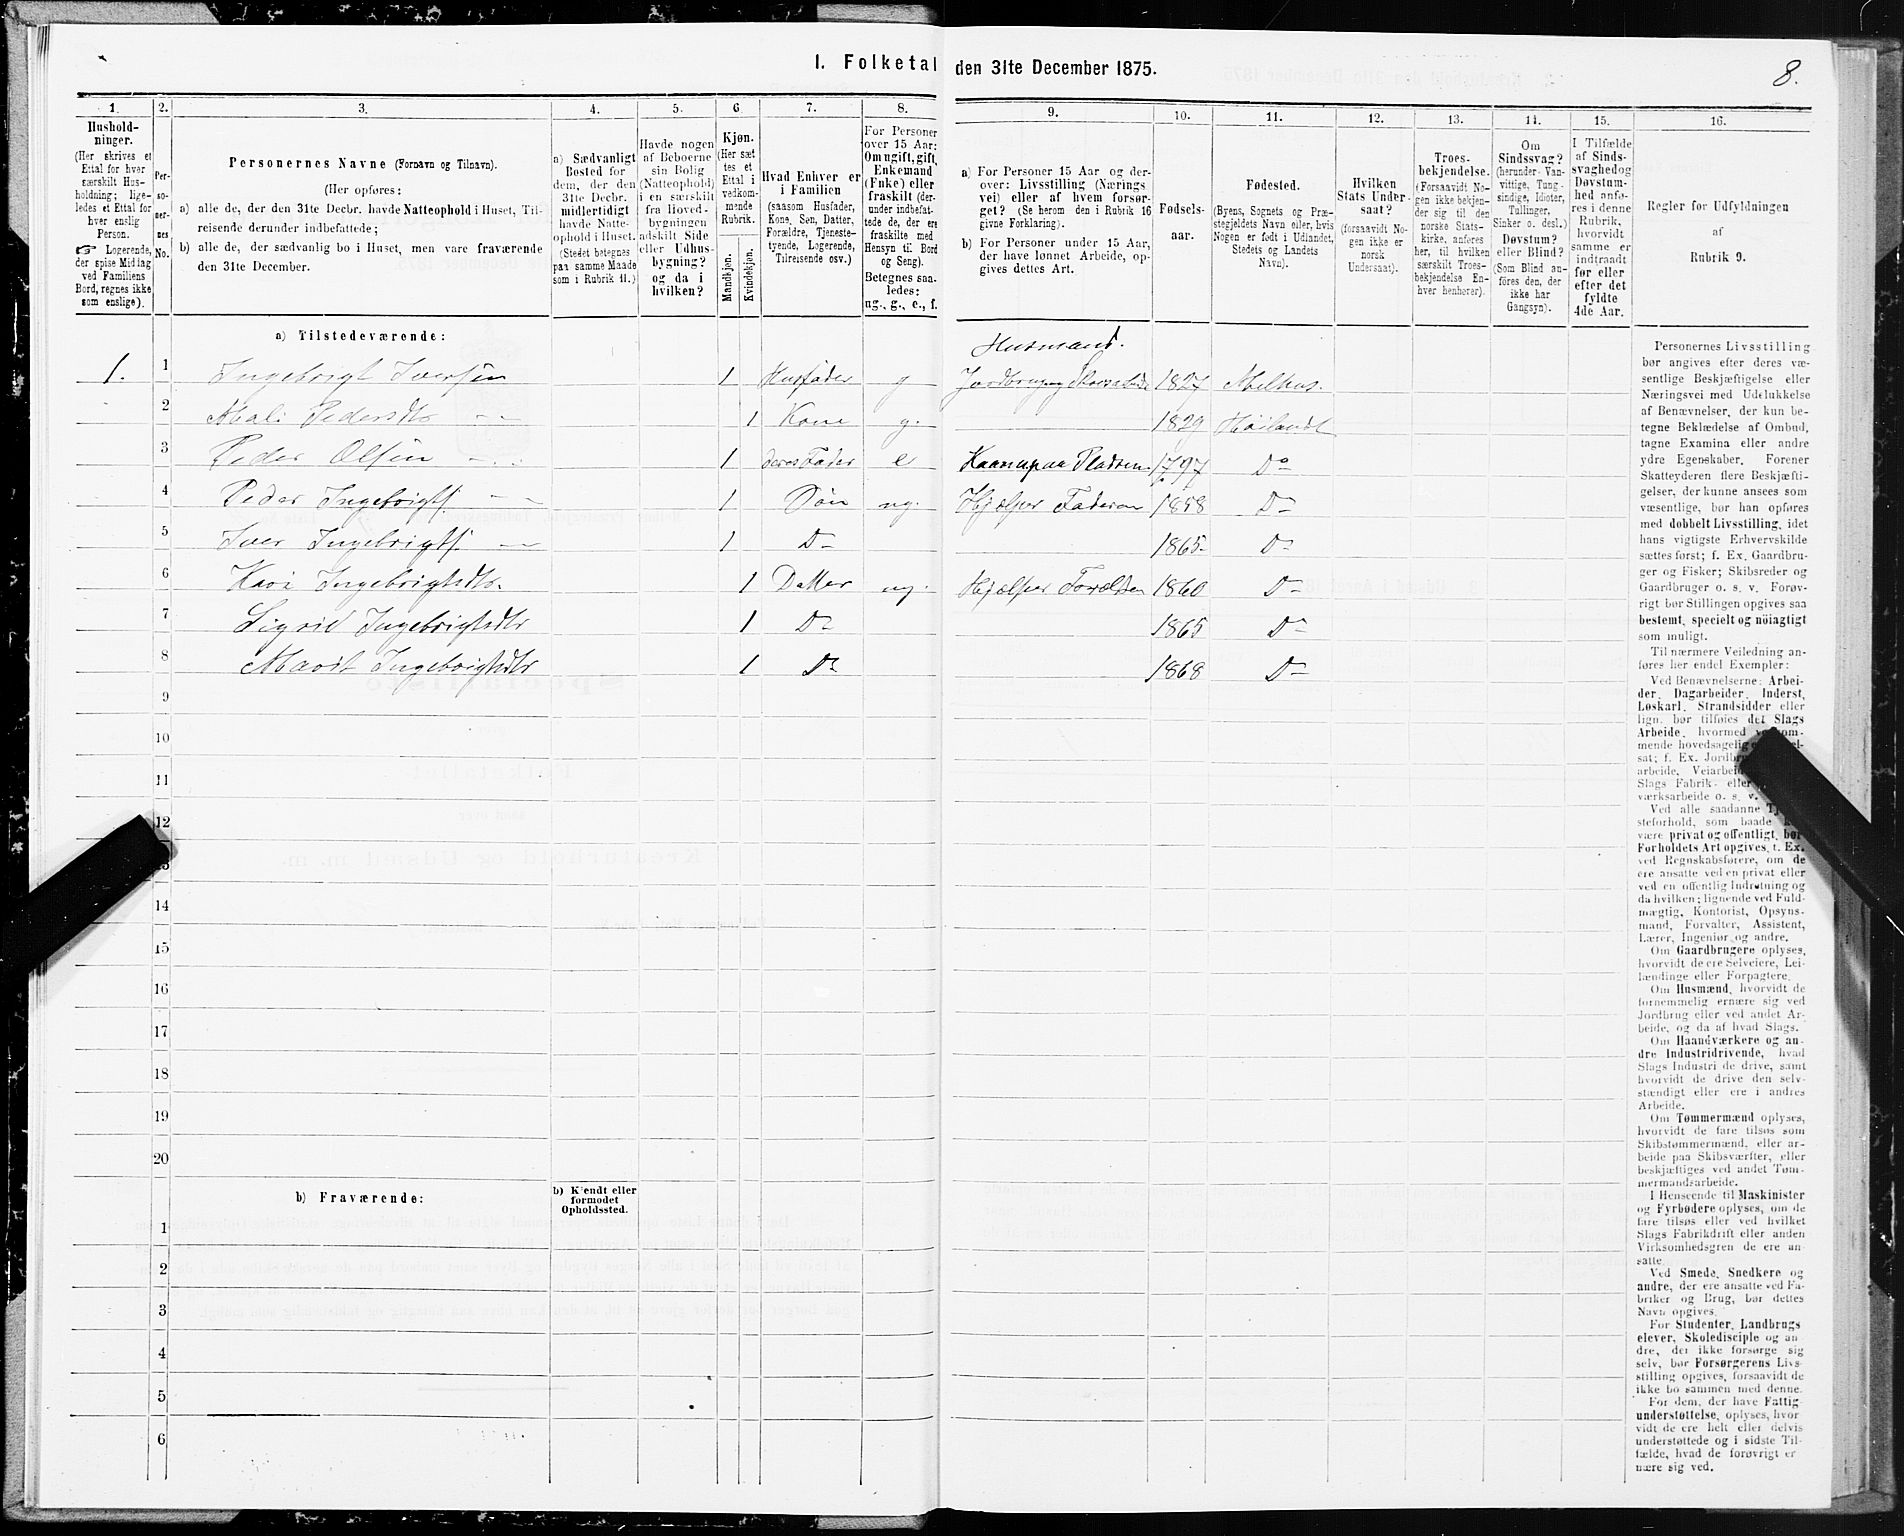 I. Folketal den 31te December 1875.
8.
1. 2. 3. 4. 5. 6 7. 8. 9. 10. 11. 12. 13. 14. 15. 16.
Hushold-
ninger.
(Her skrives et
Ettal for hver
særskilt Hus-
holdning; lige-
ledes et Ettal for
hver enslig
Person.
☞ Logerende,
der spise Middag
ved Familiens
Bord, regnes ikke
som enslige).
Per-
so-
ner-
nes
No.
Personernes Navne (Fornavn og Tilnavn).
(Her opføres:
a) alle de, der den 31te Decbr. havde Natteophold i Huset, Til-
reisende derunder indbefattede;
b) alle de, der sædvanlig bo i Huset, men vare fraværende
den 31te December.
a) Sædvanligt
Bosted for
dem, der den
31te Decbr.
midlertidigt
havde Natte-
ophold i Huset.
(Stedet betegnes
paa samme Maade
som i Rubrik 11.)
Havde nogen
af Beboerne
sin Bolig
(Natteophold)
i en særskilt
fra Hoved-
bygningen
adskilt Side
eller Udhus-
bygning?
og da i
hvilken?
Kjøn.
(Her sæt
tes et
Ettal i
vedkom-
mende
Rubrik.
Mandkjøn.
Kvindekjøn.
Hvad Enhver er
i Familien
(saasom Husfader,
Kone, Søn, Datter,
Forældre, Tjeneste-
tyende, Logerende,
Tilreisende osv.)
For Personer
over 15 Aar:
Om ugift, gift,
Enkemand
(Enke) eller
fraskilt (der-
under indbefat-
tede de, der ere
fraskilte med
Hensyn til Bord
og Seng).
Betegnes saa-
ledes:
ug., g., e., f.
a) For Personer 15 Aar og der-
over: Livsstilling (Nærings
vei) eller af hvem forsør-
get? (Se herom den i Rubrik 16
givne Forklaring).
b) For Personer under 15 Aar,
der have lønnet Arbeide, op-
gives dettes Art.
Fødsels-
aar.
Fødested.
(Byens, Sognets og Præ-
stegjeldets Navn eller, hvis
Nogen er født i Udlandet,
Stedets og Landets
Navn).
Hvilken
Stats Under-
saat?
(forsaavidt No-
gen ikke er
norsk
Undersaat).
Troes-
bekjendelse.
(Forsaavidt No-
gen ikke bekjen-
der sig til den
norske Stats-
kirke, anføres
her, til hvilken
særskilt Troes-
bekjendelse En-
hver henhører).
Om
Sindssvag?
(herunder Van-
vittige, Tung-
sindige, Idioter,
Tullinger,
Sinker o. desl.)
Døvstum?
eller Blind?
(Som Blind an-
føres den, der
ikke har
Gangsyn).
I Tilfælde
af Sinds-
svaghed og
Døvstum-
hed anfø-
res i denne
Rubrik,
hvorvidt
samme er
indtraadt
før eller
efter det
fyldte
4de Aar.
Regler for Udfyldningen
af
Rubrik 9.
a) Tilstedeværende:
Husmand.
1. 1 Ingebrigt Iversen 1 Husfader g Jordbrug og Skovarbeide 1827 Melhus.
2 Mali Pedersdtr 1 Kone g. 1829 Høilandt
3 Peder Olsen 1 deres Fader e Kaarmpaa Pladsen 1797 Do
4 Peder Ingebrigts. 1 Søn ug. Hjælper Faderen 1858 Do
5 Iver Ingebrigts. 1 Do 1865 Do
6 Kari Ingebrigtsdtr. 1 Datter ug. Hjælper Forældren 1860 Do
7 Sigrid Ingebrigtsdtr 1 Do 1865 Do
8 Marit Ingebrigtsdtr 1 Do 1868 Do
9
10
11
12
13
14
15
16
17
18
19
20
b) Fraværende:
b) Kjendt eller
formodet
Opholdssted.
1
2
3
4
5
6
Personernes Livsstilling
bør angives efter deres væ-
sentlige Beskjæftigelse eller
Næringsvei med Udelukkelse
af Benævnelser, der kun be-
tegne Beklædelse af Ombud,
tagne Examina eller andre
ydre Egenskaber. Forener
Skatteyderen flere Beskjæfti-
gelser, der kunne ansees som
væsentlige, bør han opføres
med dobbelt Livsstilling, idet
hans vigtigste Erhvervskilde
sættes først; f. Ex. Gaardbru-
ger og Fisker; Skibsreder og
Gaardbruger o. s. v. Forøv-
rigt bør Stillingen opgives saa
bestemt, specielt og nöiagtigt
som muligt.
Til nærmere Veiledning an-
føres her endel Exempler:
Ved Benævnelserne: Arbei-
der, Dagarbeider, Inderst,
Løskarl, Strandsidder eller
lign. bør tilføies det Slags
Arbeide, hvormed
mende hovedsagelig
sat; f. Ex.
arbeide,
Slags Fabrik- eller
værksarbeide o. s. v.
Ved alle saadanne
steforhold, som baade
være privat og offentligt, bør
Forholdets Art opgives, f. Ex.
ved Regnskabsførere, om de
ere ansatte ved en privat eller
ved en offentlig Indretning og
da hvilken; lignende ved Fuld-
mægtig, Kontorist, Opsyns-
mand, Forvalter, Assistent,
Lærer, Ingeniør og andre.
Om Gaardbrugere oplyses,
hvorvidt de ere Selveiere, Lei-
lændinge eller Forpagtere.
Om Husmænd, hvorvidt de
fornemmelig ernære sig ved
Jordbrug eller ved andet Ar-
beide, og da af hvad Slags.
Om Haandværkere og an-
dre Industridrivende, hvad
Slags Industri de drive, samt
hvorvidt de drive den selv-
stændigt eller ere i andres
Arbeide.
Om Tømmermænd oplyses,
hvorvidt de fare tilsøs som
Skibstømmermænd, eller ar-
beide paa Skibsværfter, eller
beskjæftiges ved andet Tøm-
mermandsarbeide.
I Henseende til Maskinister
og Fyrbødere oplyses, om de
fare tilsøs eller ved hvilket
Slags Fabrikdrift eller anden
Virksomhedsgren de ere an-
satte.
Ved Smede, Snedkere og
andre, der ere ansatte ved Fa-
briker og Brug, bør dettes
Navn opgives.
For Studenter, Landbrugs
elever, Skoledisciple og an
dre, der ikke forsørge sig
selv, bør Forsørgerens Livs-
stilling opgives, forsaavidt de
ikke bo sammen med denne.
For dem, der have Fattig-
understøttelse, oplyses, hvor
vidt de ere helt eller delvis
understøttede og i sidste Til-
fælde, hvad de forøvrigt er
nære sig ved.